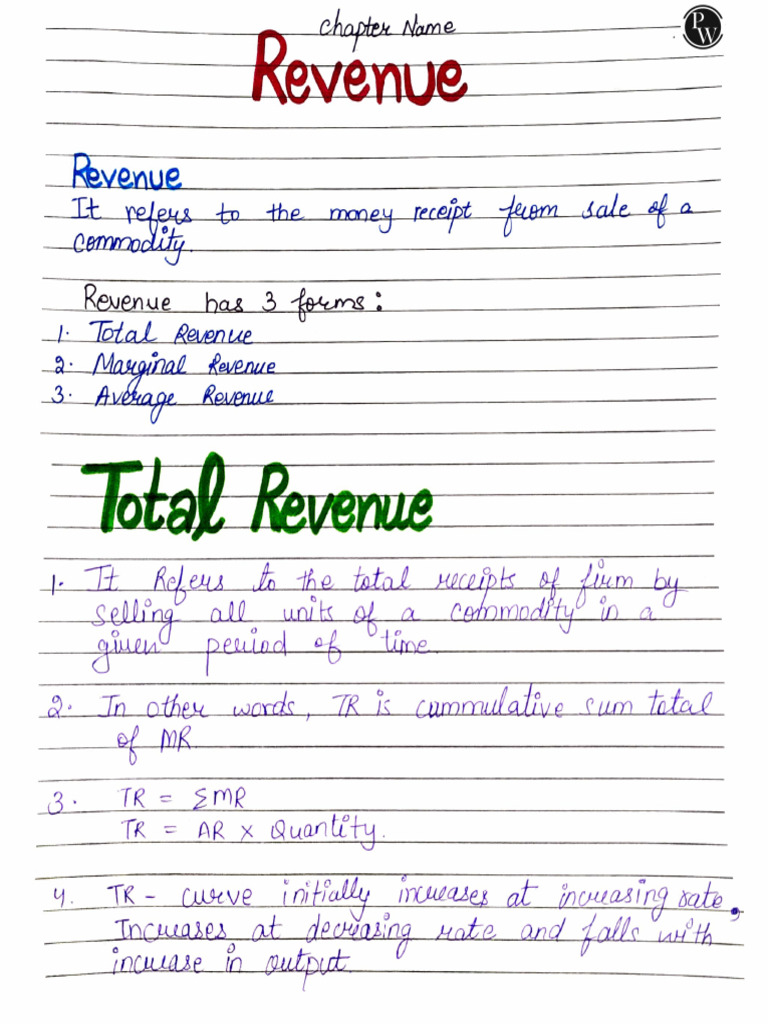 Chapter Name
PW
Revenue
Revenue
It refers to the money receipt from sale of a
commodity.
Revenue has 3 forms:
1. Total Revenue
2. Marginal Revenue
3. Average Revenue
Total Revenue
1. It Refers to the total receipts of firm by
selling all units of a commodity in a
given period of time.
2. In other words, TR is cummulative sum total
of MR.
3. TR = ΣMR
TR = AR × Quantity.
4. TR - curve initially increases at increasing rate,
Increases at decreasing rate and falls with
increase in output.